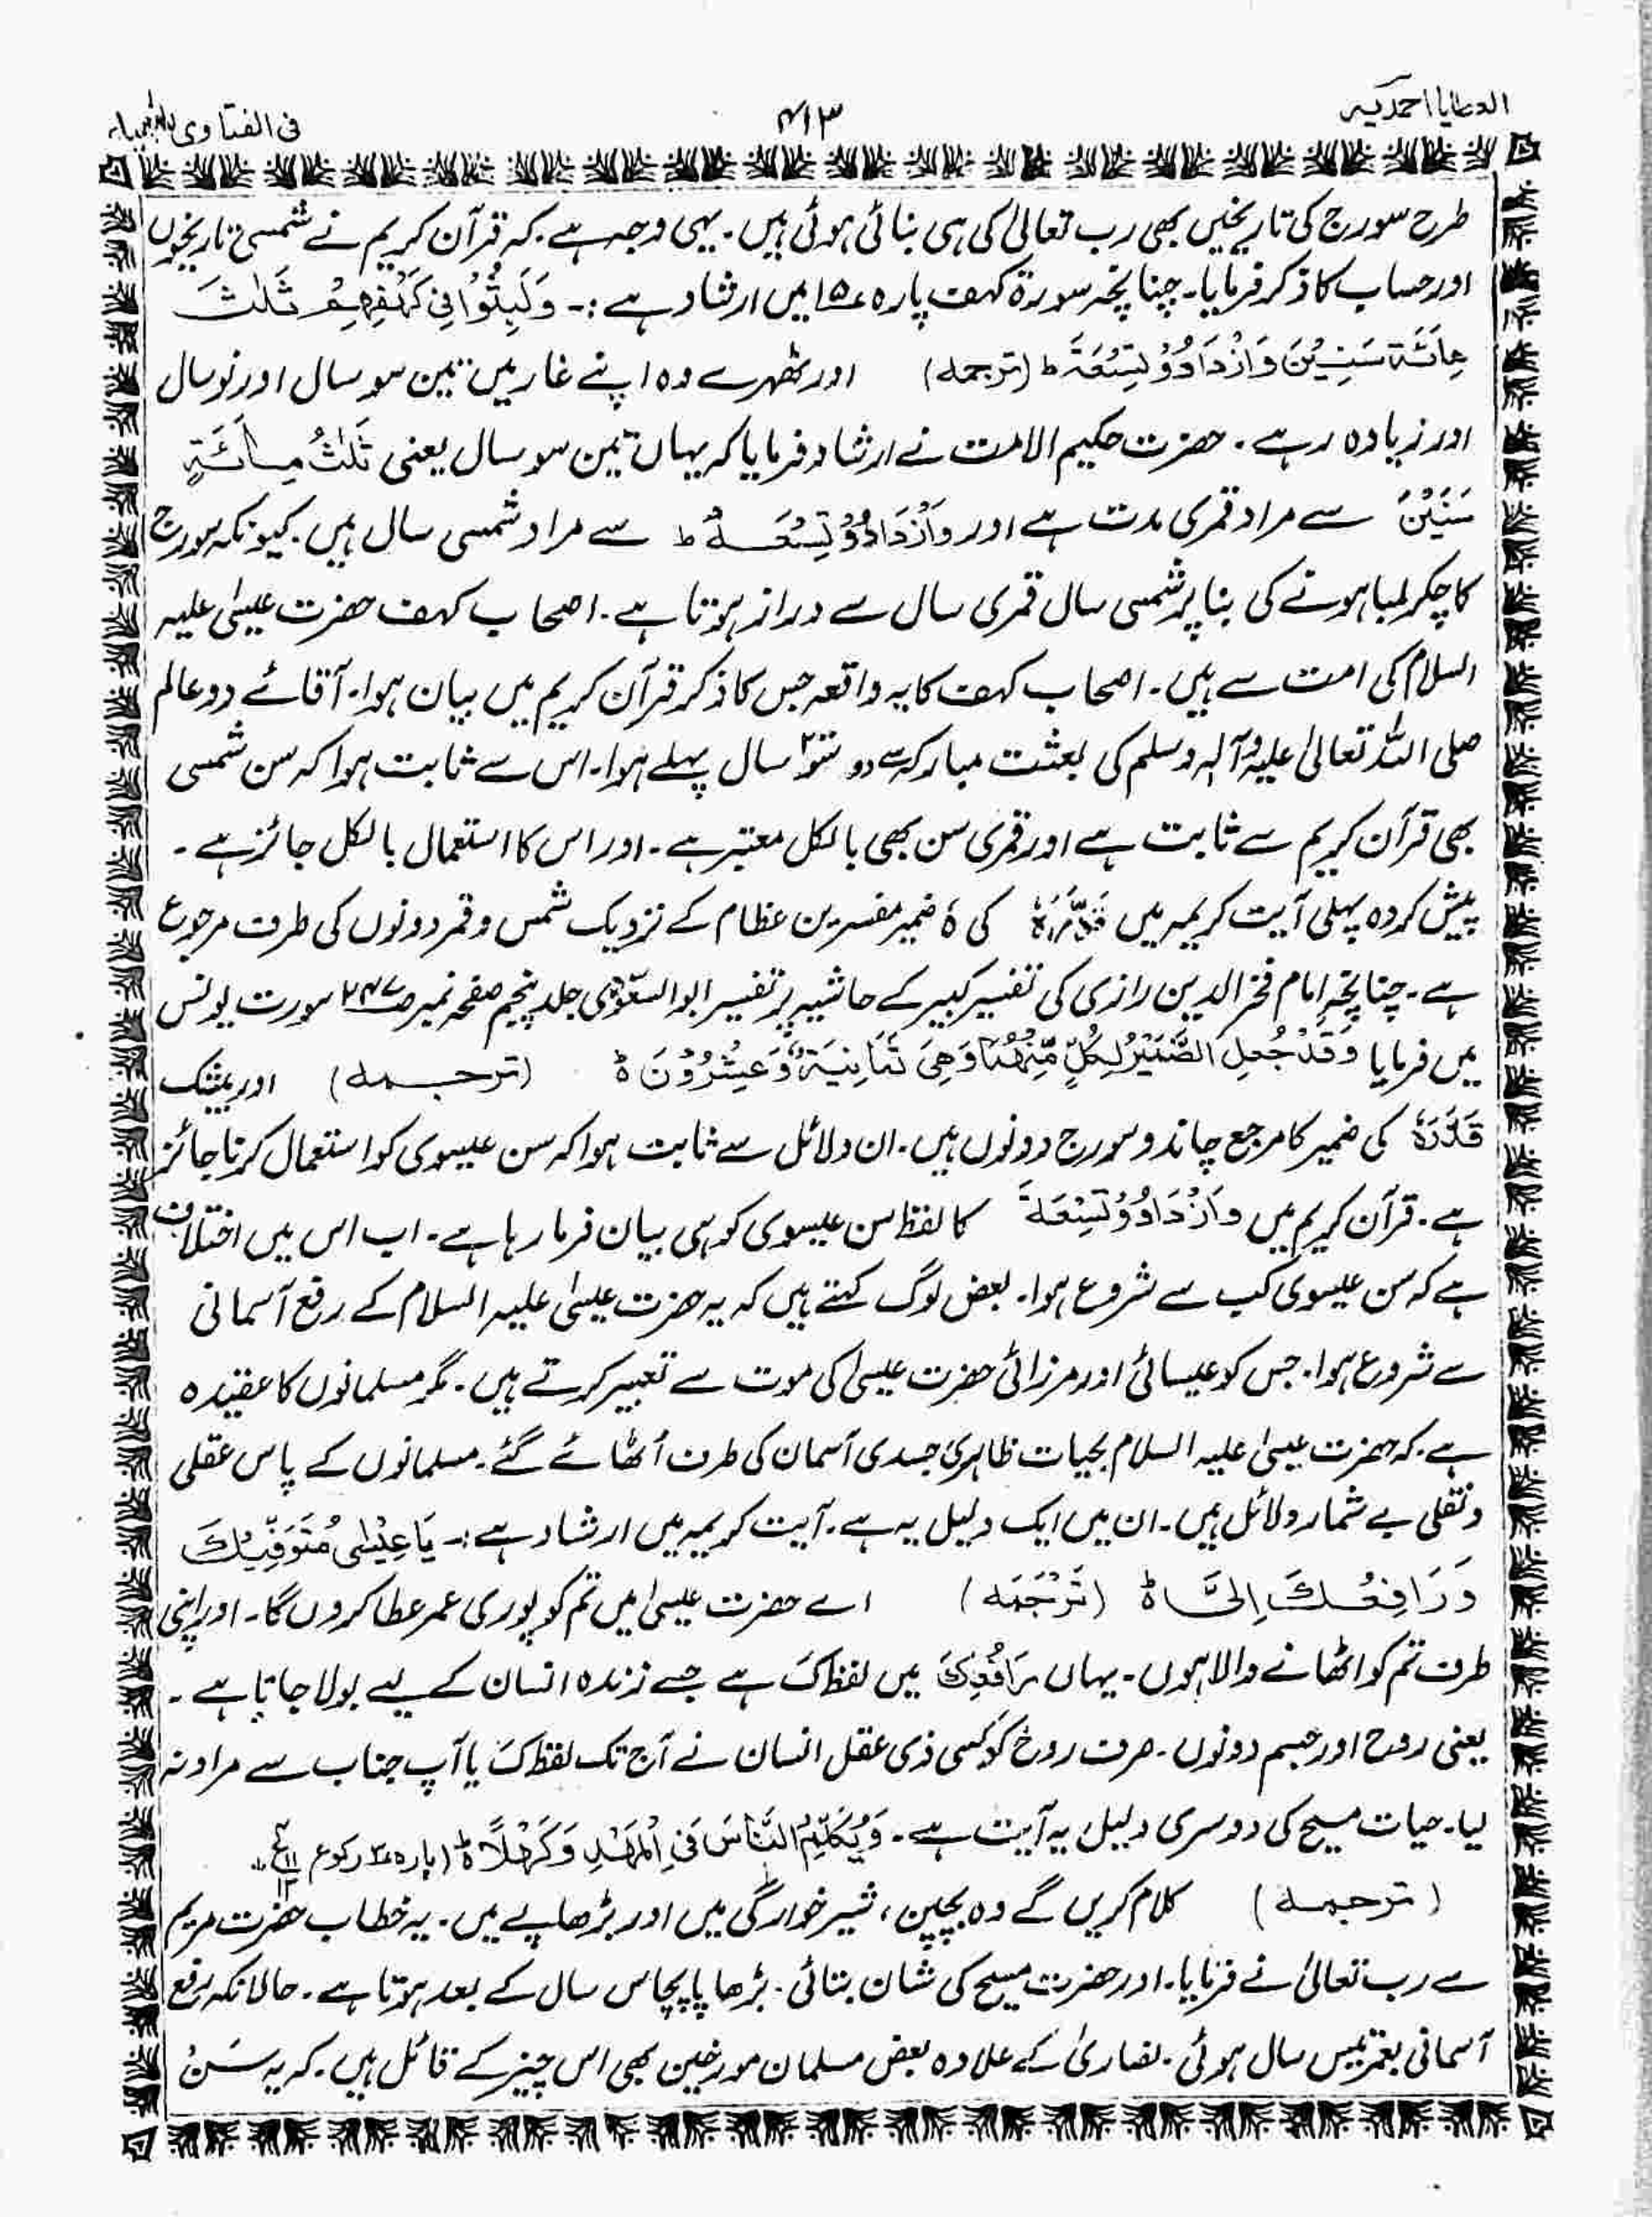 العطایا احمدیہ
۴۱۳
فی الفتاوی
طرح سورج کی تاریخیں بھی رب تعالیٰ کی ہی بنائی ہوئی ہیں۔ یہی وجہ ہے۔ کہ قرآن کریم نے شمسی تاریخوں
اور حساب کا ذکر فرمایا۔ چنانچہ سورۃ کہف پارہ ۱۵ میں ارشاد ہے :۔ وَلَبِثُوْا فِیْ کَہْفِهِمْ ثَلٰثَ
مِائَۃٍ سَنِیْنَ وَازْدَادُوْ تِسْعَۃً ط (ترجمہ) اور ٹھہرے وہ اپنے غار میں تین سو سال اور نو سال
اور زیادہ رہے۔ حضرت حکیم الامت نے ارشاد فرمایا کہ یہاں تین سو سال یعنی ثَلٰثُ مِائَۃٍ
سَنِیْنَ سے مراد قمری مدت ہے اور وَازْدَادُوْ تِسْعَۃً ط سے مراد شمسی سال ہیں۔ کیونکہ سورج
کا چکر لمبا ہونے کی بنا پر شمسی سال قمری سال سے دراز ہوتا ہے۔ اصحاب کہف حضرت عیسیٰ علیہ
السلام کی امت سے ہیں۔ اصحاب کہف کا یہ واقعہ جس کا ذکر قرآن کریم میں بیان ہوا۔ آقائے دو عالم
صلی اللہ تعالیٰ علیہ وآلہ وسلم کی بعثت مبارکہ سے دو سو سال پہلے ہوا۔ اس سے ثابت ہوا کہ سن شمسی
بھی قرآن کریم سے ثابت ہے اور قمری سن بھی بالکل معتبر ہے۔ اور اس کا استعمال بالکل جائز ہے۔
پیش کردہ پہلی آیت کریمہ میں قَدَّرَہٗ کی ہٗ ضمیر مفسرین عظام کے نزدیک شمس و قمر دونوں کی طرف مرجوع
ہے۔ چنانچہ امام فخر الدین رازی کی تفسیر کبیر کے حاشیہ پر تفسیر ابوالسعودی جلد پنجم صفحہ نمبر سورت یونس
میں فرمایا وَقَدْ جُعِلَ الضَّمِیْرُ لِکُلٍّ مِّنْهُمَا وَهِیَ ثَمَانِیَۃٌ وَّعِشْرُوْنَ ط (ترجمہ) اور بیشک
قَدَّرَہٗ کی ضمیر کا مرجع چاند و سورج دونوں ہیں۔ ان دلائل سے ثابت ہوا کہ سن عیسوی کو استعمال کرنا جائز
ہے۔ قرآن کریم میں وَازْدَادُوْ تِسْعَۃً کا لفظ سن عیسوی کو ہی بیان فرما رہا ہے۔ اب اس میں اختلاف
ہے کہ سن عیسوی کب سے شروع ہوا۔ بعض لوگ کہتے ہیں کہ یہ حضرت عیسیٰ علیہ السلام کے رفع آسمانی
سے شروع ہوا۔ جس کو عیسائی اور مرزائی حضرت عیسیٰ کی موت سے تعبیر کرتے ہیں۔ مگر مسلمانوں کا عقیدہ
ہے۔ کہ حضرت عیسیٰ علیہ السلام بحیات ظاہری جسدی آسمان کی طرف اُٹھائے گئے۔ مسلمانوں کے پاس عقلی
و نقلی بے شمار دلائل ہیں۔ ان میں ایک دلیل یہ ہے۔ آیت کریمہ میں ارشاد ہے :۔ یَا عِیْسٰی مُتَوَفِّیْكَ
وَرَافِعُكَ اِلَیَّ ط (تَرْجَمَہ) اے حضرت عیسیٰ میں تم کو پوری عمر عطا کروں گا۔ اور اپنی
طرف تم کو اٹھانے والا ہوں۔ یہاں رَافِعُكَ میں لفظ كَ ہے جسے زندہ انسان کے لیے بولا جاتا ہے۔
یعنی روح اور جسم دونوں۔ صرف روح کو کسی ذی عقل انسان نے آج تک لفظ كَ یا آپ جناب سے مراد نہ
لیا۔ حیات مسیح کی دوسری دلیل یہ آیت ہے۔ وَیُکَلِّمُ النَّاسَ فِی الْمَهْدِ وَکَهْلًا ط (پارہ ۳ رکوع
(ترجمہ) کلام کریں گے وہ بچپن، شیر خوارگی میں اور بڑھاپے میں۔ یہ خطاب حضرت مریم
سے رب تعالیٰ نے فرمایا۔ اور حضرت مسیح کی شان بتائی۔ بڑھاپا پچاس سال کے بعد ہوتا ہے۔ حالانکہ رفع
آسمانی بعمر تیس سال ہوئی۔ نصاریٰ کے علاوہ بعض مسلمان مورخین بھی اس چیز کے قائل ہیں۔ کہ یہ سَنْ